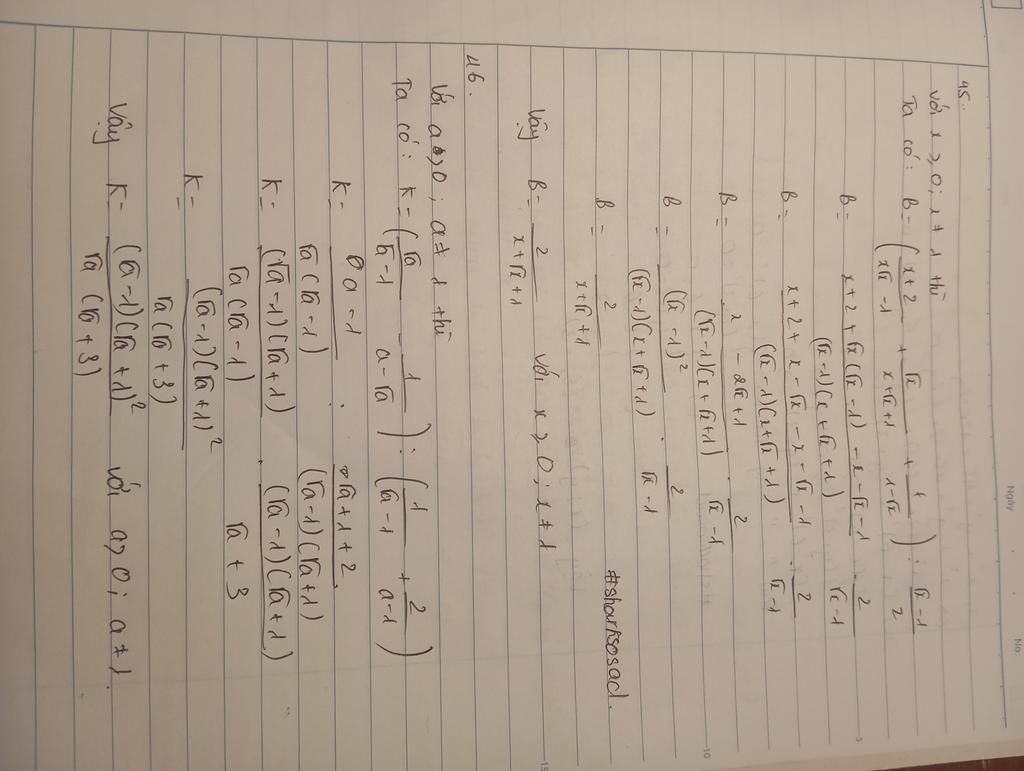 Ngày
No.
45.
Với x ≥ 0; x ≠ 1 thì
Ta có: B = ( (x+2)/(x√x − 1) + √x/(x+√x+1) + 1/(1−√x) ) : (√x−1)/2
B = (x+2+√x(√x−1) − x−√x−1)/((√x−1)(x+√x+1)) · 2/(√x−1)
5
B = (x+2+x−√x−x−√x−1)/((√x−1)(x+√x+1)) · 2/(√x−1)
B = (x − 2√x+1)/((√x−1)(x+√x+1)) · 2/(√x−1)
10
B = (√x−1)²/((√x−1)(x+√x+1)) · 2/(√x−1)
B = 2/(x+√x+1)
#sharksosad.
Vậy B = 2/(x+√x+1) với x ≥ 0; x ≠ 1
15
46.
Với a > 0; a ≠ 1 thì
Ta có: K = ( √a/(√a−1) − 1/(a−√a) ) : ( 1/(√a−1) + 2/(a−1) )
K = (a−1)/(√a(√a−1)) : (√a+1+2)/((√a−1)(√a+1))
K = (√a−1)(√a+1)/(√a(√a−1)) · (√a−1)(√a+1)/(√a+3)
K = (√a−1)(√a+1)²/(√a(√a+3))
Vậy K = (√a−1)(√a+1)²/(√a(√a+3)) với a > 0; a ≠ 1.